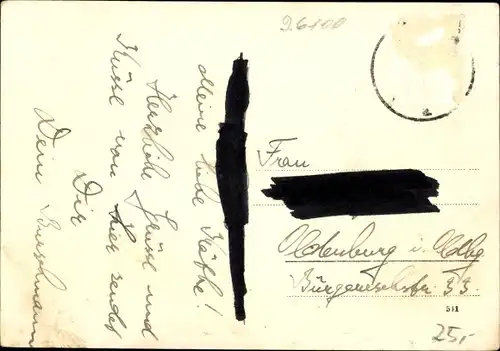 26100
Meine liebe Käthe!
Herzliche Grüße und
Küsse von hier sendet
Dir
Dein
Frau
Oldenburg i. Oldbg
Bürgereschstr. 33
511
25,-